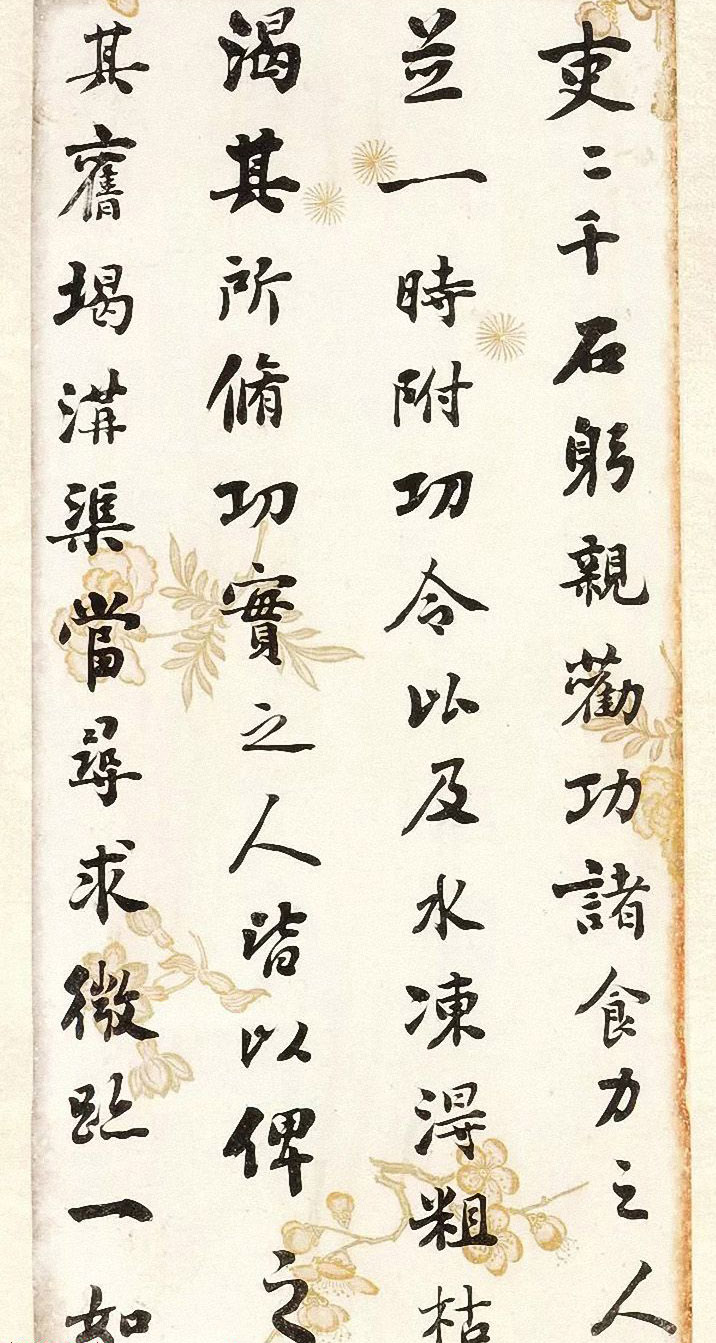 吏二千石躬親勸功諸食力之人
並一時附功令以及水凍淂粗枯
渴其所脩功實之人皆以俾之
其舊堨溝渠當尋求微趾一如